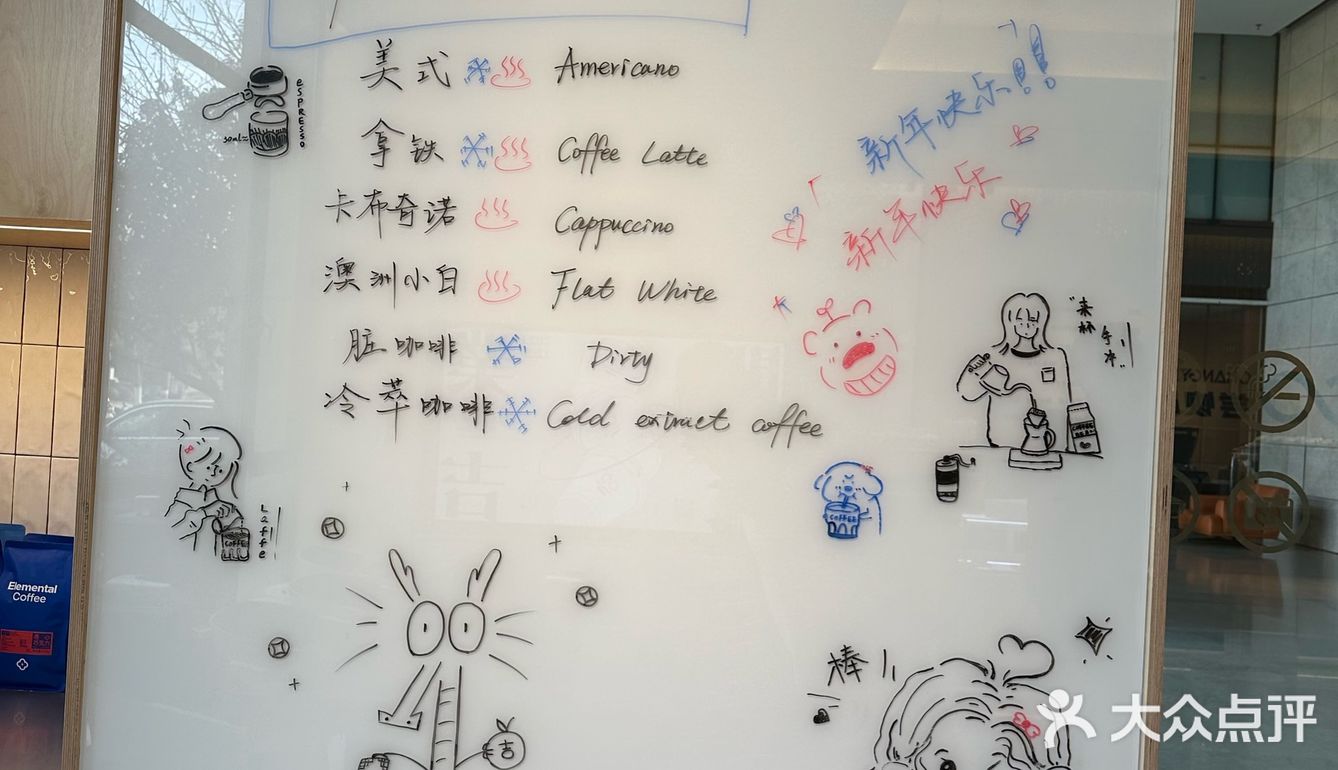 美式 Americano
新年快乐!!!
ESPRESSO
30ml≈
拿铁 Coffee Latte
新年快乐
卡布奇诺 Cappuccino
澳洲小白 Flat White
"来杯手冲!"
脏咖啡 Dirty
冷萃咖啡 Cold extract coffee
COFFEE
COFFEE
Laffe
COFFEE
Elemental
Coffee
吉
棒!!
大众点评